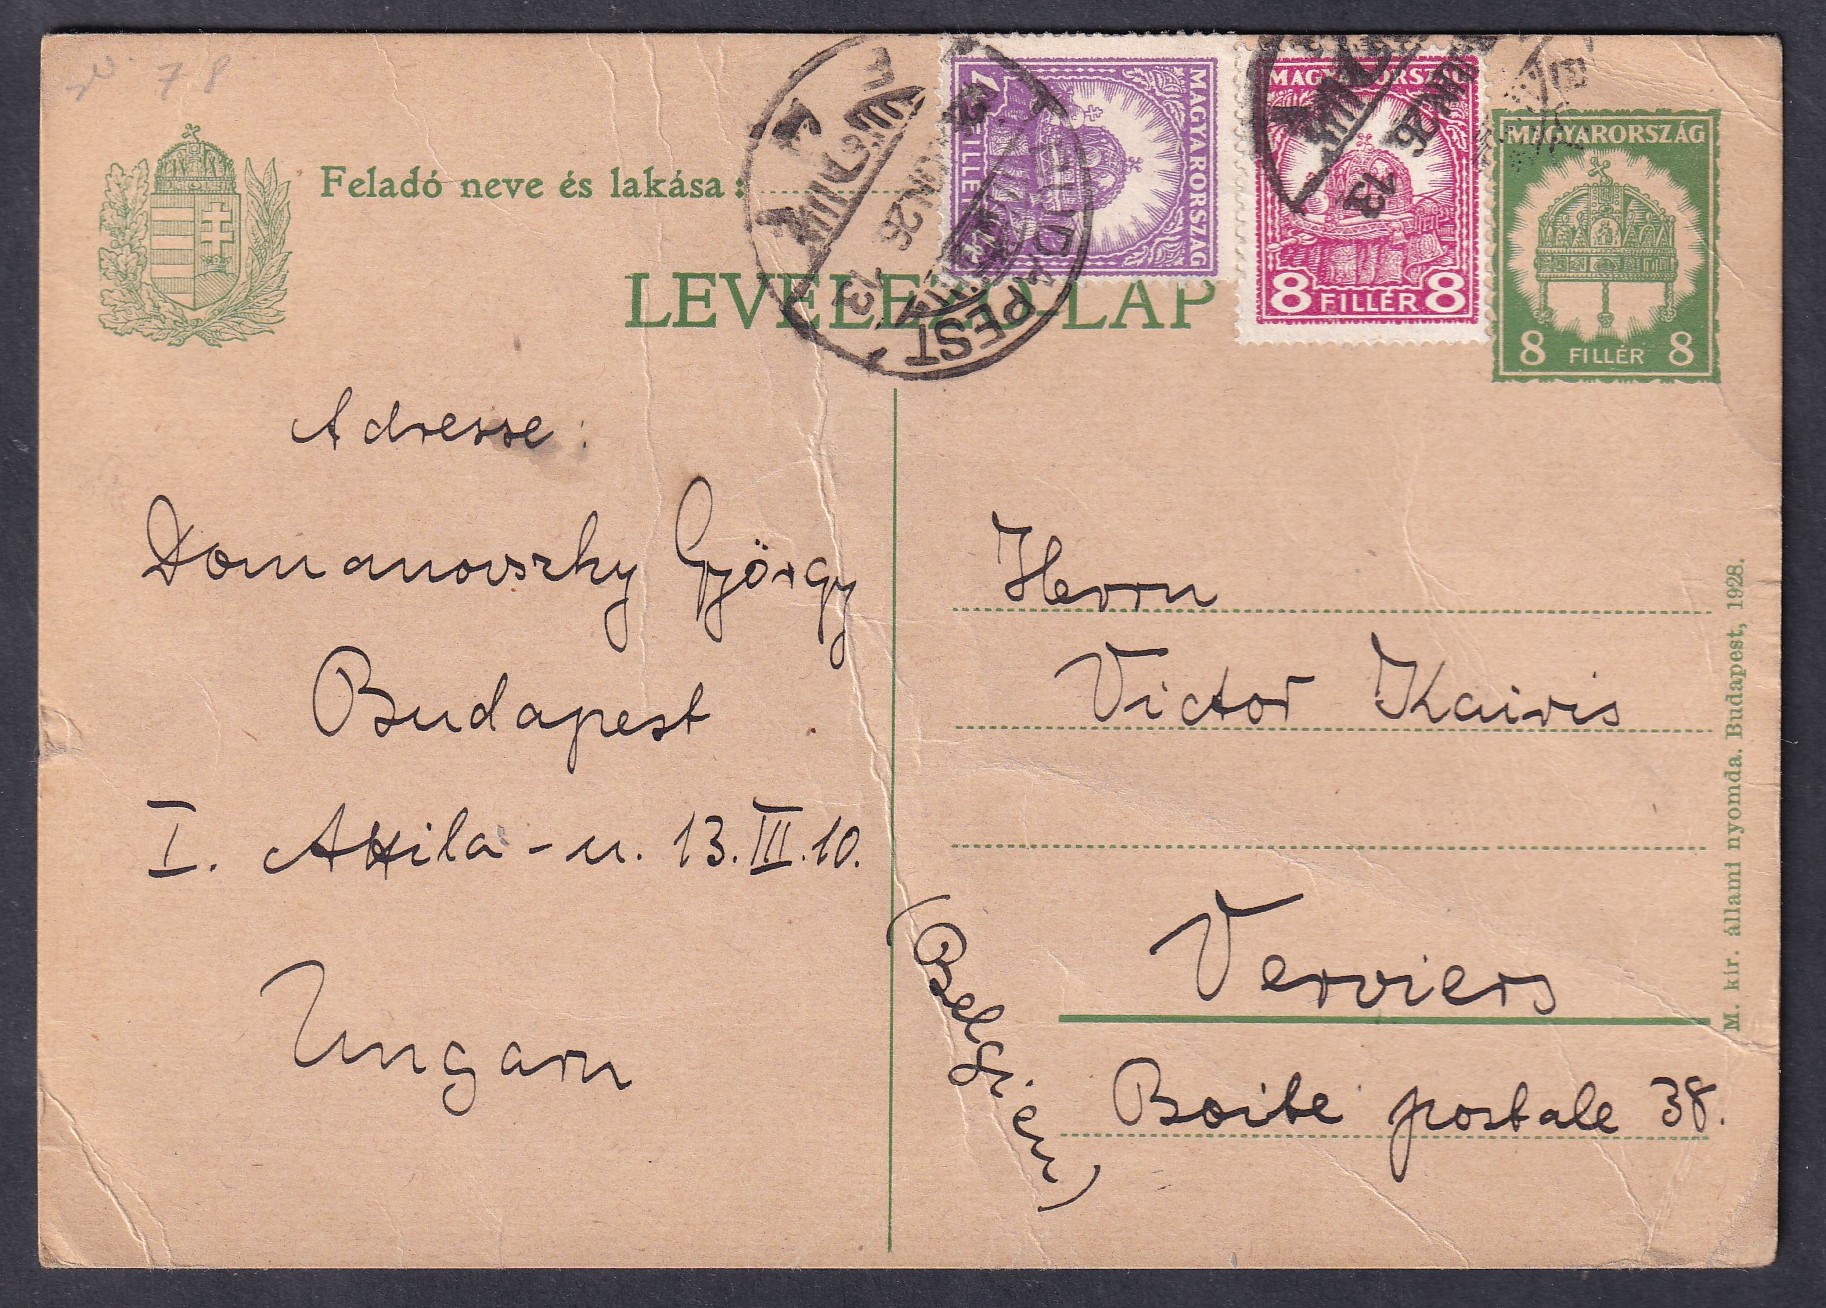 N. 78
Feladó neve és lakása:
LEVELEZŐ-LAP
MAGYARORSZÁG
4 FILLÉR 4
MAGYARORSZÁG
8 FILLÉR 8
MAGYARORSZÁG
8 FILLÉR 8
BUDAPEST
JUN 26 13
JUN 26
13
Adresse:
Domanovszky György
Budapest
I. Attila-u. 13. III. 10.
Ungarn
Herrn
Victor Kaivis
Verviers
(Belgien)
Boite postale 38.
M. kir. állami nyomda. Budapest, 1928.